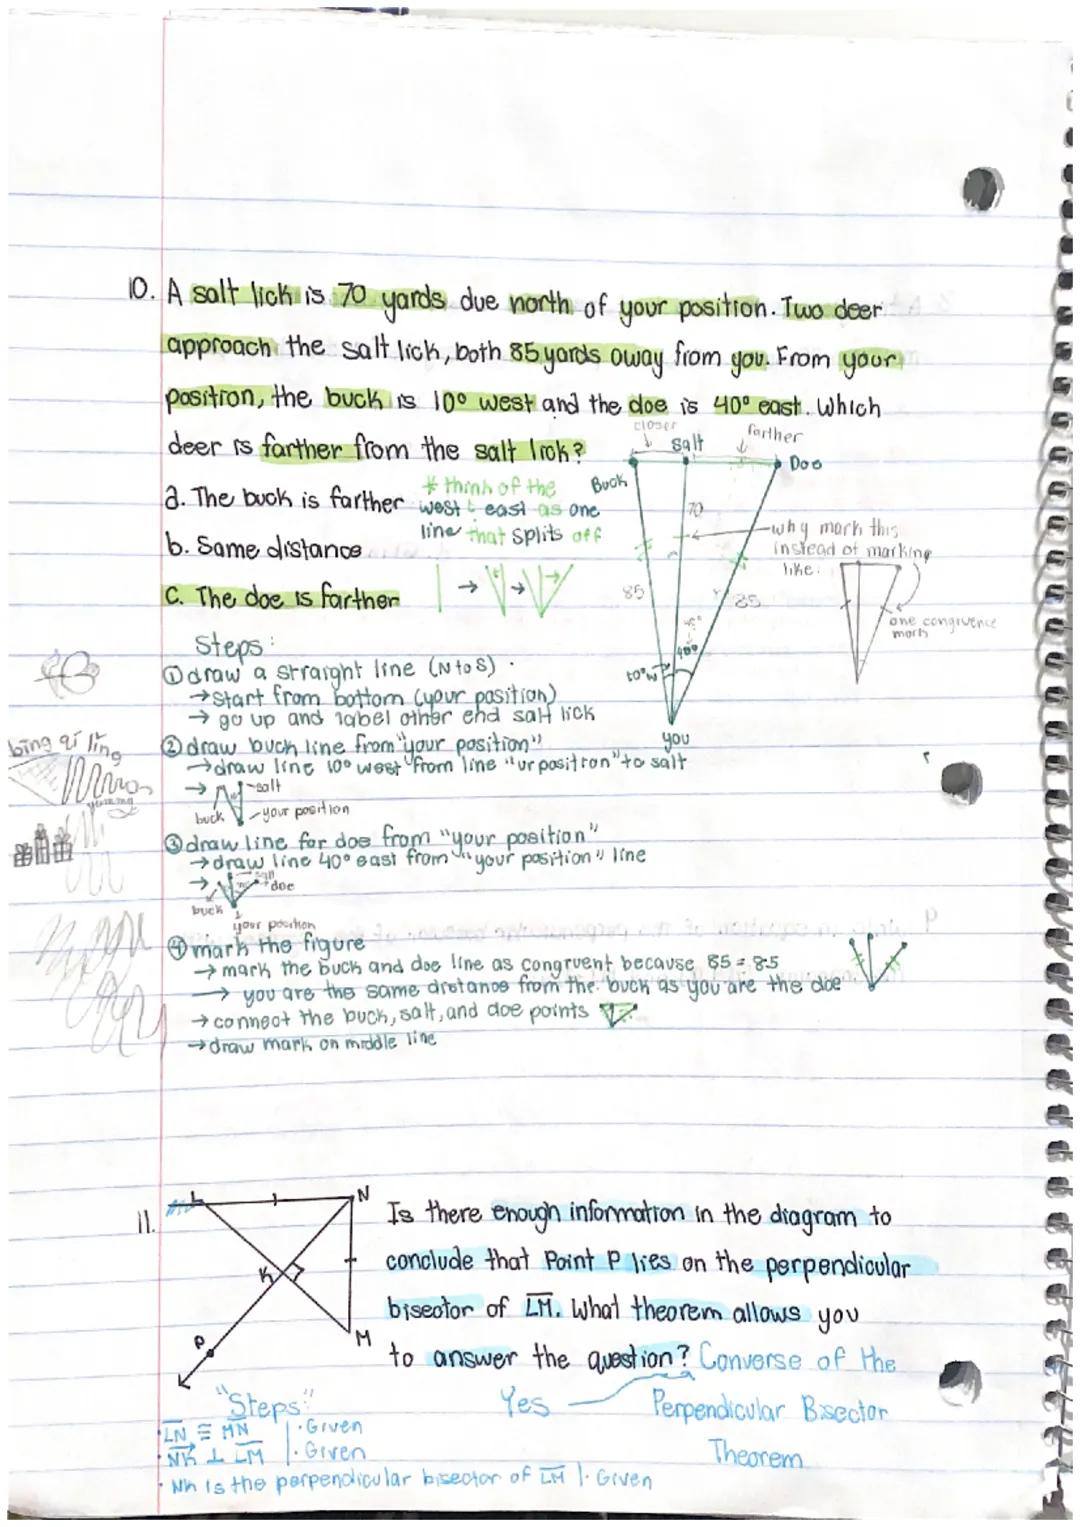 10. A salt lick is 70 yards due north of your position. Two deer
approach the salt lick, both 85 yards away from you. From your
position, the buck is 10° west and the doe is 40° east. Which
deer is farther from the salt lick?
closer
salt
farther
Doe
Buck
a. The buck is farther
* think of the
west & east as one
line that splits off
b. Same distance
C. The doe is farther
70
why mark this
instead of marking
like:
85
85
one congruence
mark
40°
10°W
you
Steps:
① draw a straight line (N to S)
→ start from bottom (your position)
→ go up and label other end salt lick
② draw buck line from "your position"
→ draw line 10° west from line "ur position" to salt
→
salt
buck
your position
③ draw line for doe from "your position"
→ draw line 40° east from "your position" line
→
salt
doe
buck
your position
④ mark the figure
→ mark the buck and doe line as congruent because 85 = 85
→ you are the same distance from the buck as you are the doe
→ connect the buck, salt, and doe points
→ draw mark on middle line
bing qi ling
11.
L
N
K
P
M
Is there enough information in the diagram to
conclude that Point P lies on the perpendicular
bisector of LM. What theorem allows you
to answer the question? Converse of the
Yes
Perpendicular Bisector
Theorem
"Steps"
LN ≅ MN | · Given
NK ⊥ LM | · Given
· NK is the perpendicular bisector of LM | · Given